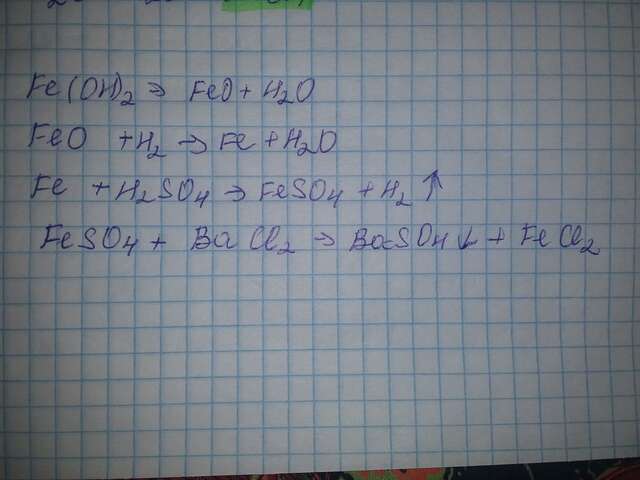 Fe(OH)₂ → FeO + H₂O
FeO + H₂ → Fe + H₂O
Fe + H₂SO₄ → FeSO₄ + H₂ ↑
FeSO₄ + BaCl₂ → BaSO₄ ↓ + FeCl₂